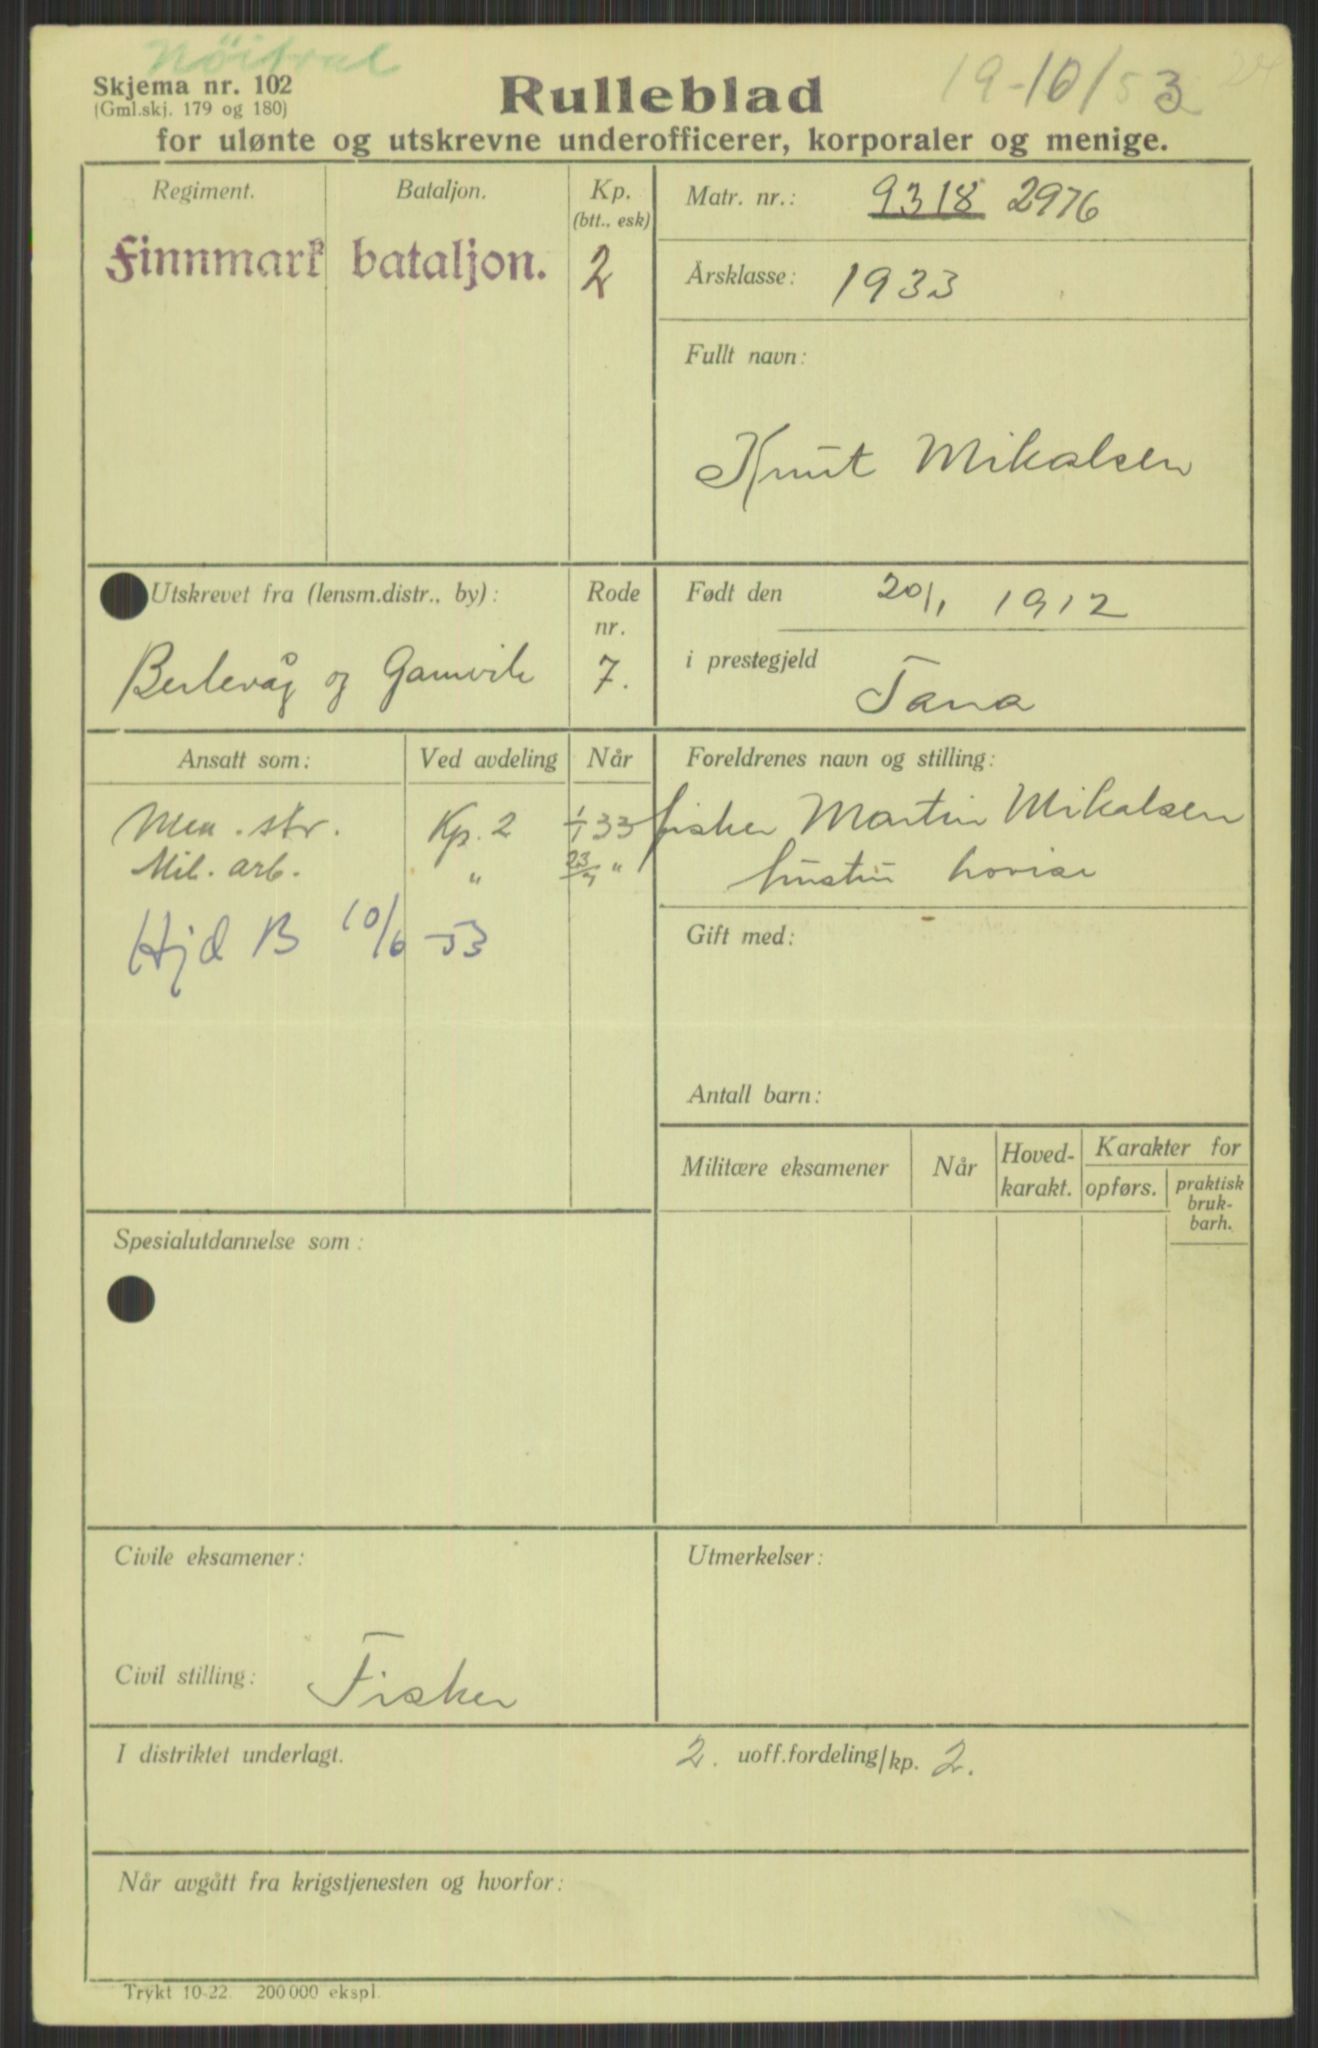 Nöitral
Skjema nr. 102
(Gml.skj. 179 og 180)
Rulleblad
19-10/53
for ulønte og utskrevne underofficerer, korporaler og menige.
Regiment. Bataljon. Kp.
(btt., esk)
Finnmark bataljon. 2
Matr. nr.: 9318 2976
Årsklasse: 1933
Fullt navn:
Knut Mikalsen
Utskrevet fra (lensm.distr., by): Rode
nr.
Berlevåg og Gamvik 7.
Født den 20/1 1912
i prestegjeld Tana
Ansatt som: Ved avdeling Når
Men. str. Kp. 2 1/1 33
Mil. arb. " 23/7 "
Hjd B 10/6 -53
Foreldrenes navn og stilling:
fisker Martin Mikalsen
hustru Lovise
Gift med:
Antall barn:
Militære eksamener Når Hoved-
karakt. Karakter for
opførs. praktisk
bruk-
barh.
Spesialutdannelse som:
Civile eksamener:
Utmerkelser:
Civil stilling: Fisker
I distriktet underlagt. 2. uoff.fordeling/kp. 2.
Når avgått fra krigstjenesten og hvorfor:
Trykt 10-22. 200000 ekspl.